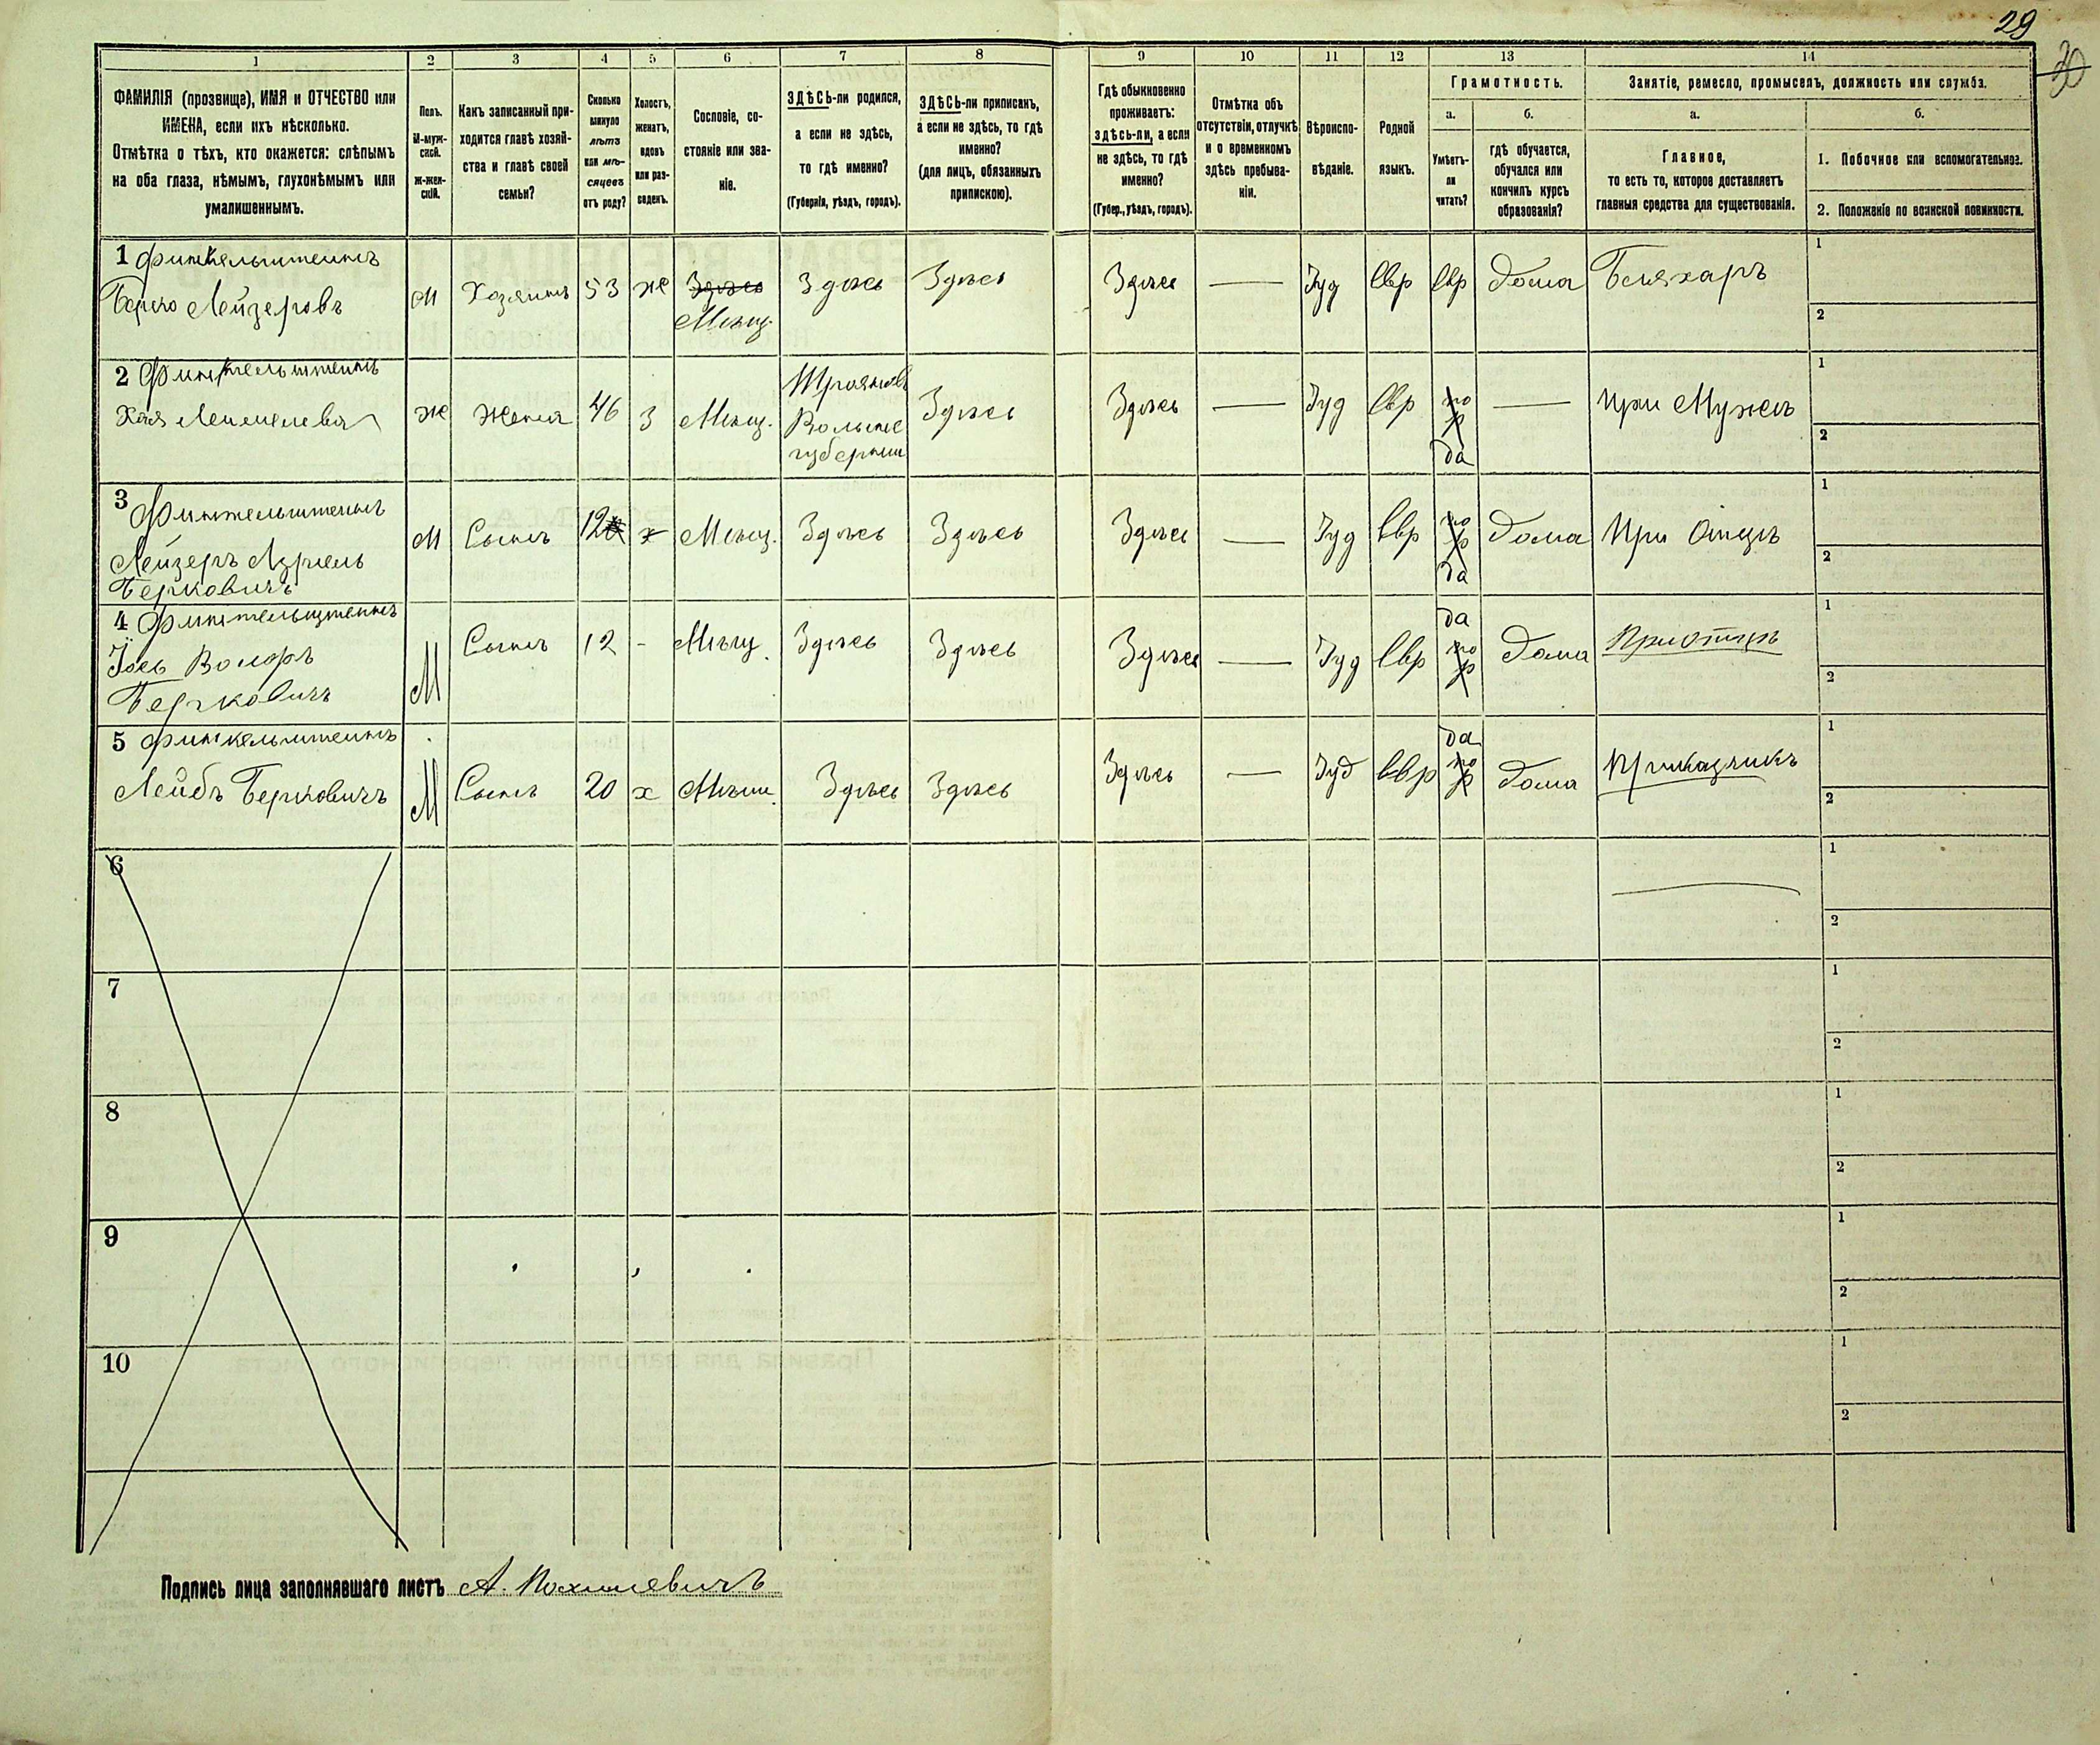 29
30
1
2
3
4
5
6
7
8
9
10
11
12
13
14
ФАМИЛІЯ (прозвище), ИМЯ и ОТЧЕСТВО или
ИМЕНА, если ихъ нѣсколько.
Отмѣтка о тѣхъ, кто окажется: слѣпымъ
на оба глаза, нѣмымъ, глухонѣмымъ или
умалишеннымъ.
Полъ.
М-муж-
ской.
Ж-жен-
скій.
Какъ записанный при-
ходится главѣ хозяй-
ства и главѣ своей
семьи?
Сколько
минуло
лѣтъ
или мѣ-
сяцевъ
отъ роду?
Холостъ,
женатъ,
вдовъ
или раз-
веденъ.
Сословіе, со-
стояніе или зва-
ніе.
ЗДѢСЬ-ли родился,
а если не здѣсь,
то гдѣ именно?
(Губернія, уѣздъ, городъ).
ЗДѢСЬ-ли приписанъ,
а если не здѣсь, то гдѣ
именно?
(для лицъ, обязанныхъ
припискою).
Гдѣ обыкновенно
проживаетъ:
здѣсь-ли, а если
не здѣсь, то гдѣ
именно?
(Губер., уѣздъ, городъ).
Отмѣтка объ
отсутствіи, отлучкѣ
и о временномъ
здѣсь пребыва-
ніи.
Вѣроиспо-
вѣданіе.
Родной
языкъ.
Грамотность.
а.
Умѣетъ-
ли
читать?
б.
гдѣ обучается,
обучался или
кончилъ курсъ
образованія?
Занятіе, ремесло, промыселъ, должность или служба.
а.
Главное,
то есть то, которое доставляетъ
главныя средства для существованія.
б.
1. Побочное или вспомогательное.
2. Положеніе по воинской повинности.
1 Финкельштейнъ
Берко Лейзеровъ
М
Хозяинъ
53
же
Здѣсь
Мѣщ.
Здѣсь
Здѣсь
Здѣсь
—
Іуд
Евр
Евр
дома
Бляхаръ
1
2
2 Финкельштейнъ
Хая
Ж
Жена
46
З
Мѣщ.
Волынс
губерніи
Здѣсь
Здѣсь
—
Іуд
Евр
да
—
при Мужѣ
1
2
3 Финкельштейнъ
Лейзеръ Азріель
Берковичъ
М
Сынъ
12
х
Мѣщ.
Здѣсь
Здѣсь
Здѣсь
—
Іуд
Евр
да
дома
При Отцѣ
1
2
4 Финкельштейнъ
Іось Вольфъ
Берковичъ
М
Сынъ
12
-
Мѣщ.
Здѣсь
Здѣсь
Здѣсь
—
Іуд
Евр
да
дома
При отцѣ
1
2
5 Финкельштейнъ
Лейбъ Берковичъ
М
Сынъ
20
х
Мѣщ.
Здѣсь
Здѣсь
Здѣсь
—
Іуд
Евр
да
дома
Приказчикъ
1
2
6
1
2
7
1
2
8
1
2
9
1
2
10
1
2
Подпись лица заполнявшаго листъ А.